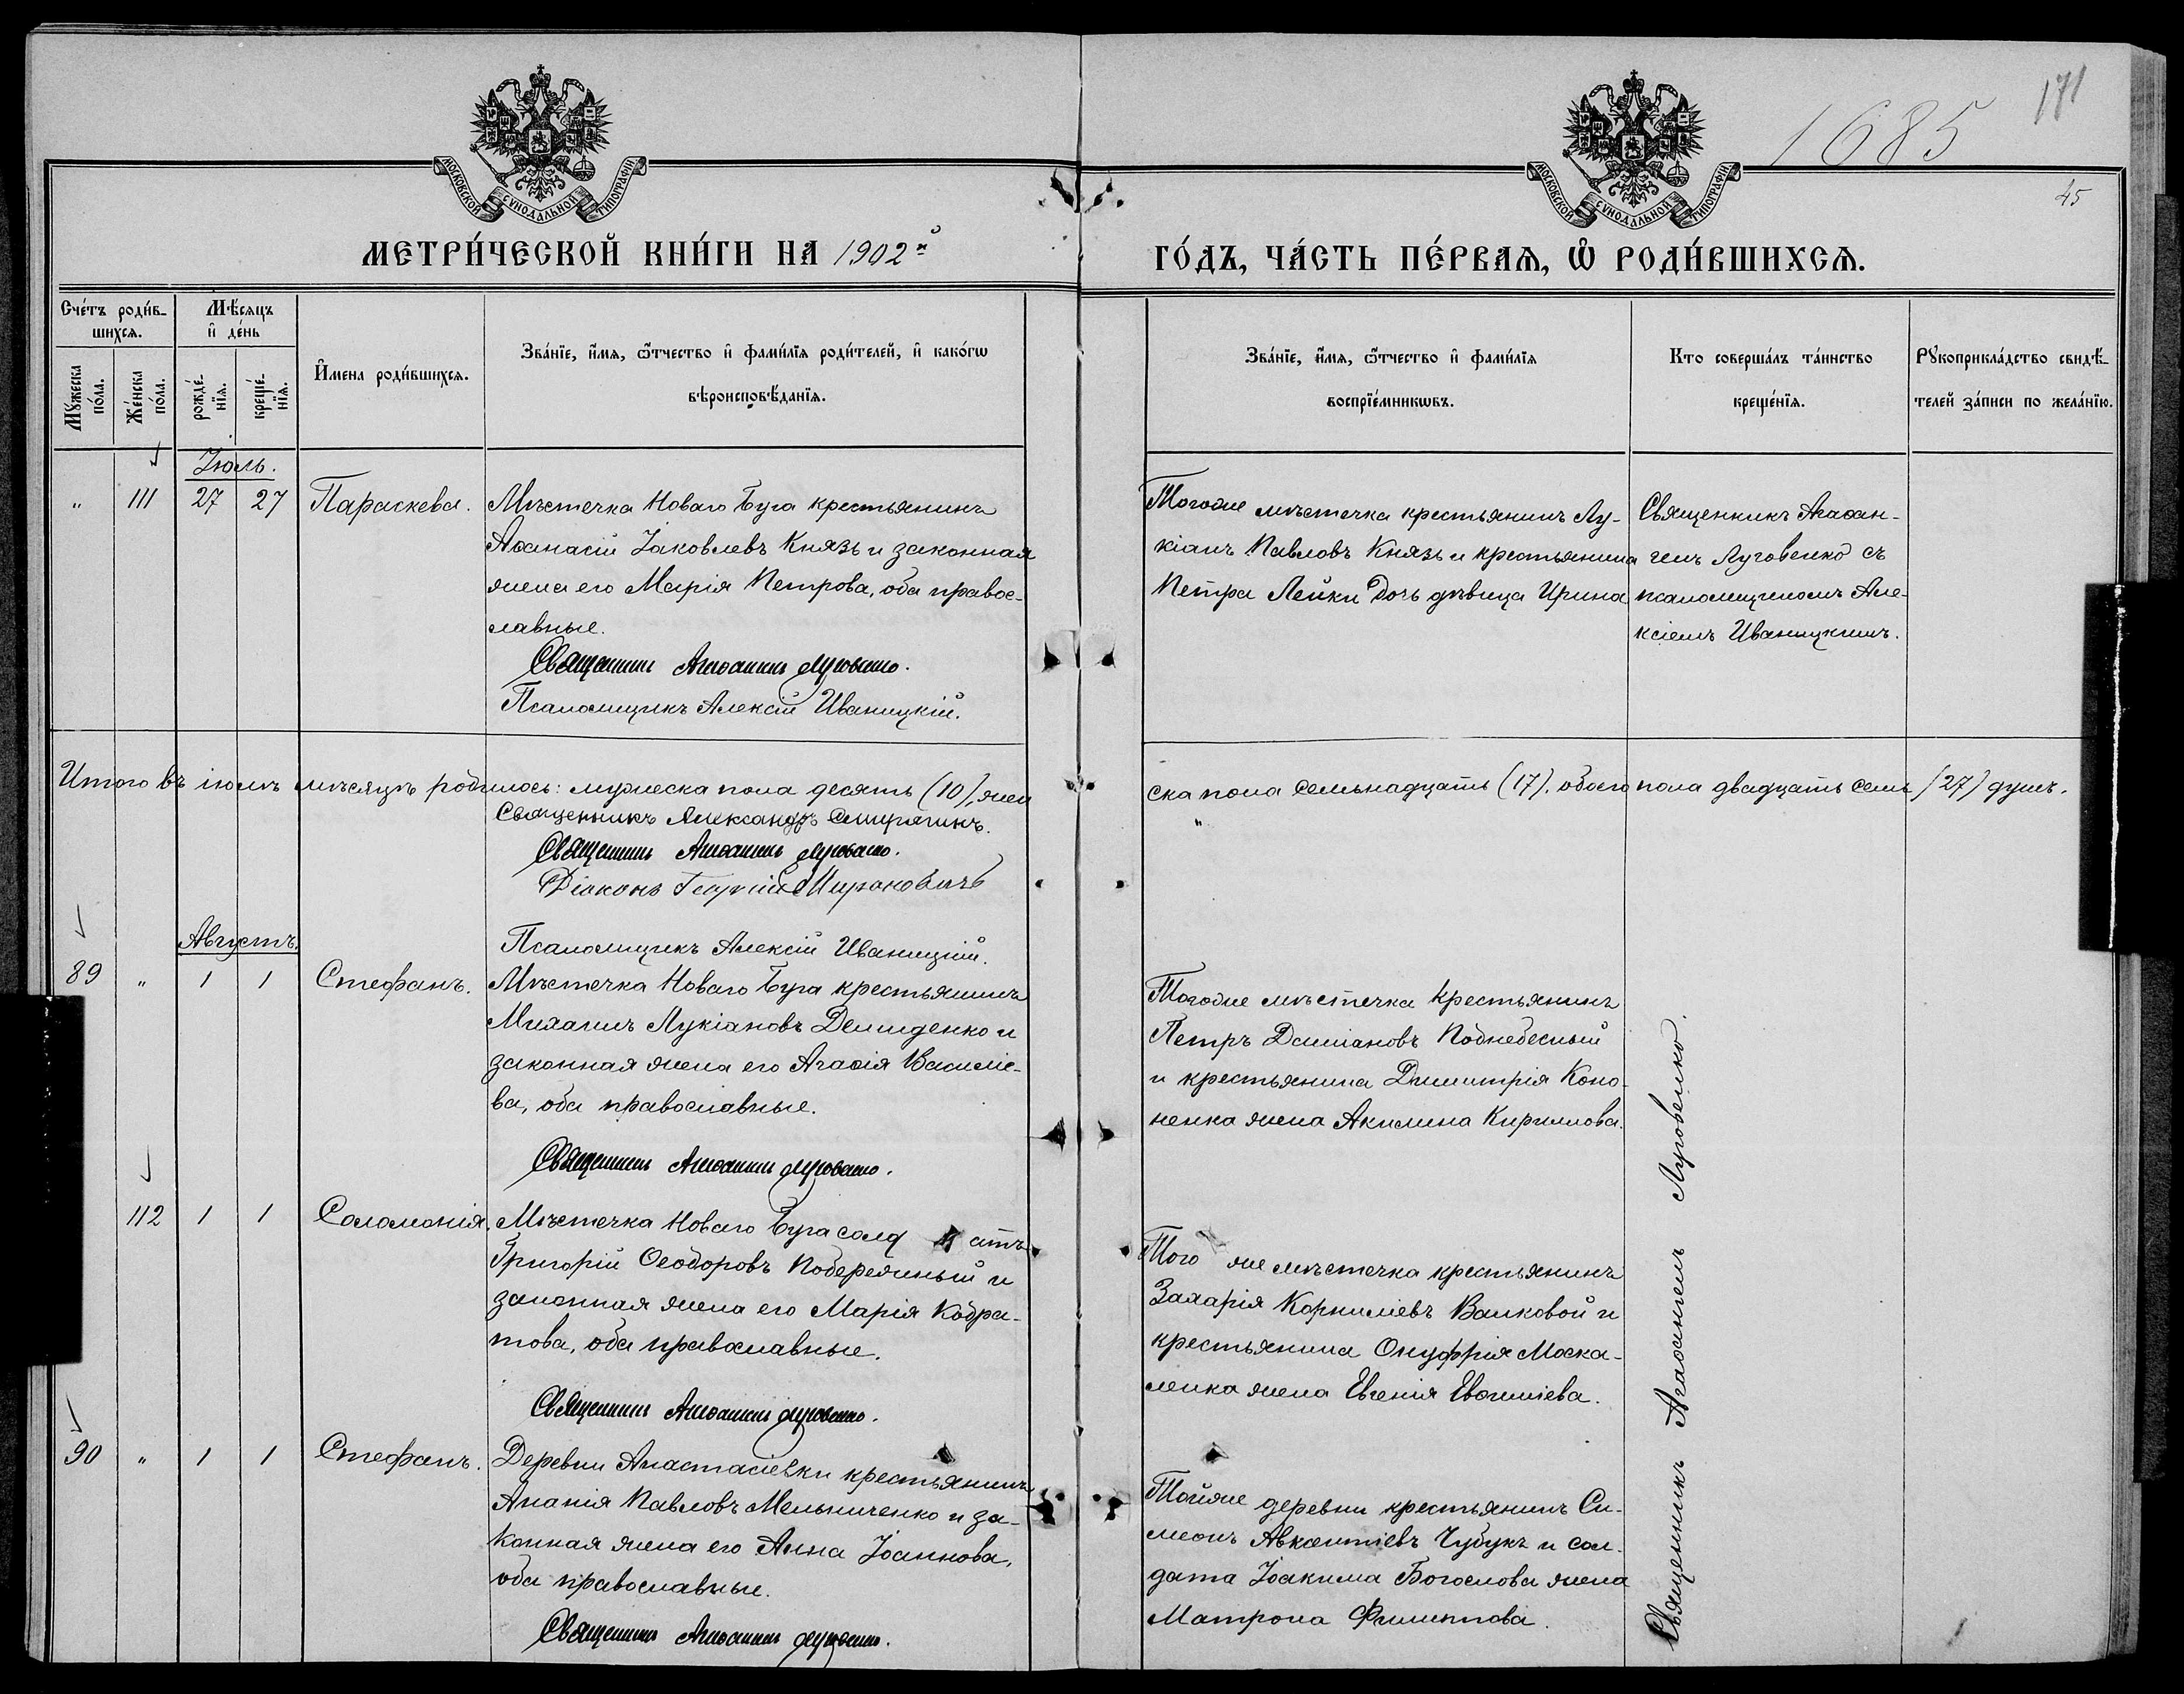 171
1685
45
МОСКОВСКОЙ СѴНОДАЛЬНОЙ ТИПОГРАФІИ
МОСКОВСКОЙ СѴНОДАЛЬНОЙ ТИПОГРАФІИ
МЕТРИ́ЧЕСКОЙ КНИ́ГИ НА 1902й
ГО́ДЪ, ЧА́СТЬ ПЕ́РВАЯ, Ѽ РОДИ́ВШИХСЯ.
Сче́тъ роди́в-
шихся.
Мѣ́сяцъ
и҆ де́нь
Мꙋ́жеска
по́ла.
Же́нска
по́ла.
рожде́-
нїя.
креще́-
нїя.
И҆мена роди́вшихся.
Зва́нїе, и҆́мя, ѻ҆́тчество и҆ фами́лїя роди́телей, и҆ како́гѡ
вѣроисповѣ́данїя.
Зва́нїе, и҆́мя, ѻ҆́тчество и҆ фами́лїя
воспрїе́мникѡвъ.
Кто соверша́лъ та́инство
креще́нїя.
Рꙋкоприкла́дство свидѣ́-
телей за́писи по жела́нїю.
Іюль.
" 111 27 27 Параскева.
Мѣстечка Новаго Буга крестьянинъ
Аѳанасій Іаковлевъ Князь и законная
жена его Марія Петрова, оба правос-
лавные.
Священникъ Агаѳангелъ Луговенко.
Псаломщикъ Алексій Иваницкій.
Тогоже мѣстечка крестьянинъ Лу-
кіанъ Павловъ Князь и крестьянина
Петра Лейки дочь дѣвица Ирина
Священникъ Агаѳан-
гелъ Луговенко съ
псаломщикомъ Але-
ксіемъ Иваницкимъ.
Итого въ іюлѣ мѣсяцѣ родилось: мужеска пола десять (10), жен
ска пола семьнадцать (17). обоего пола двадцать семь (27) душъ.
Священникъ Александръ Смирягинъ.
Священникъ Агаѳангелъ Луговенко.
Діаконъ Георгій Мирановичъ
Псаломщикъ Алексій Иваницкій.
Августъ.
89 " 1 1 Стефанъ.
Мѣстечка Новаго Буга крестьянинъ
Михаилъ Лукіановъ Демиденко и
законная жена его Агаѳія Василіе-
ва, оба православные.
Священникъ Агаѳангелъ Луговенко.
Тогоже мѣстечка крестьянинъ
Петръ Даміановъ Поднебесный
и крестьянина Димитрія Коно-
ненка жена Акилина Кириллова.
112 1 1 Саломонія.
Мѣстечка Новаго Буга солд атъ
Григорій Ѳеодоровъ Побережный и
законная жена его Марія Кодра-
това, оба православные.
Священникъ Агаѳангелъ Луговенко.
Того же мѣстечка крестьянинъ
Захарія Корниліевъ Валковой и
крестьянина Онуфрія Моска-
ленка жена Евгенія Евѳиміева.
90 " 1 1 Стефанъ.
Деревни Анастасіевки крестьянинъ
Ананія Павловъ Мельниченко и за-
конная жена его Анна Іоаннова,
оба православные.
Священникъ Агаѳангелъ Луговенко.
Тойже деревни крестьянинъ Си-
меонъ Авксентіевъ Чубукъ и сол-
дата Іоакима Богослова жена
Матрона Филиппова.
Священникъ Агаѳангелъ Луговенко.